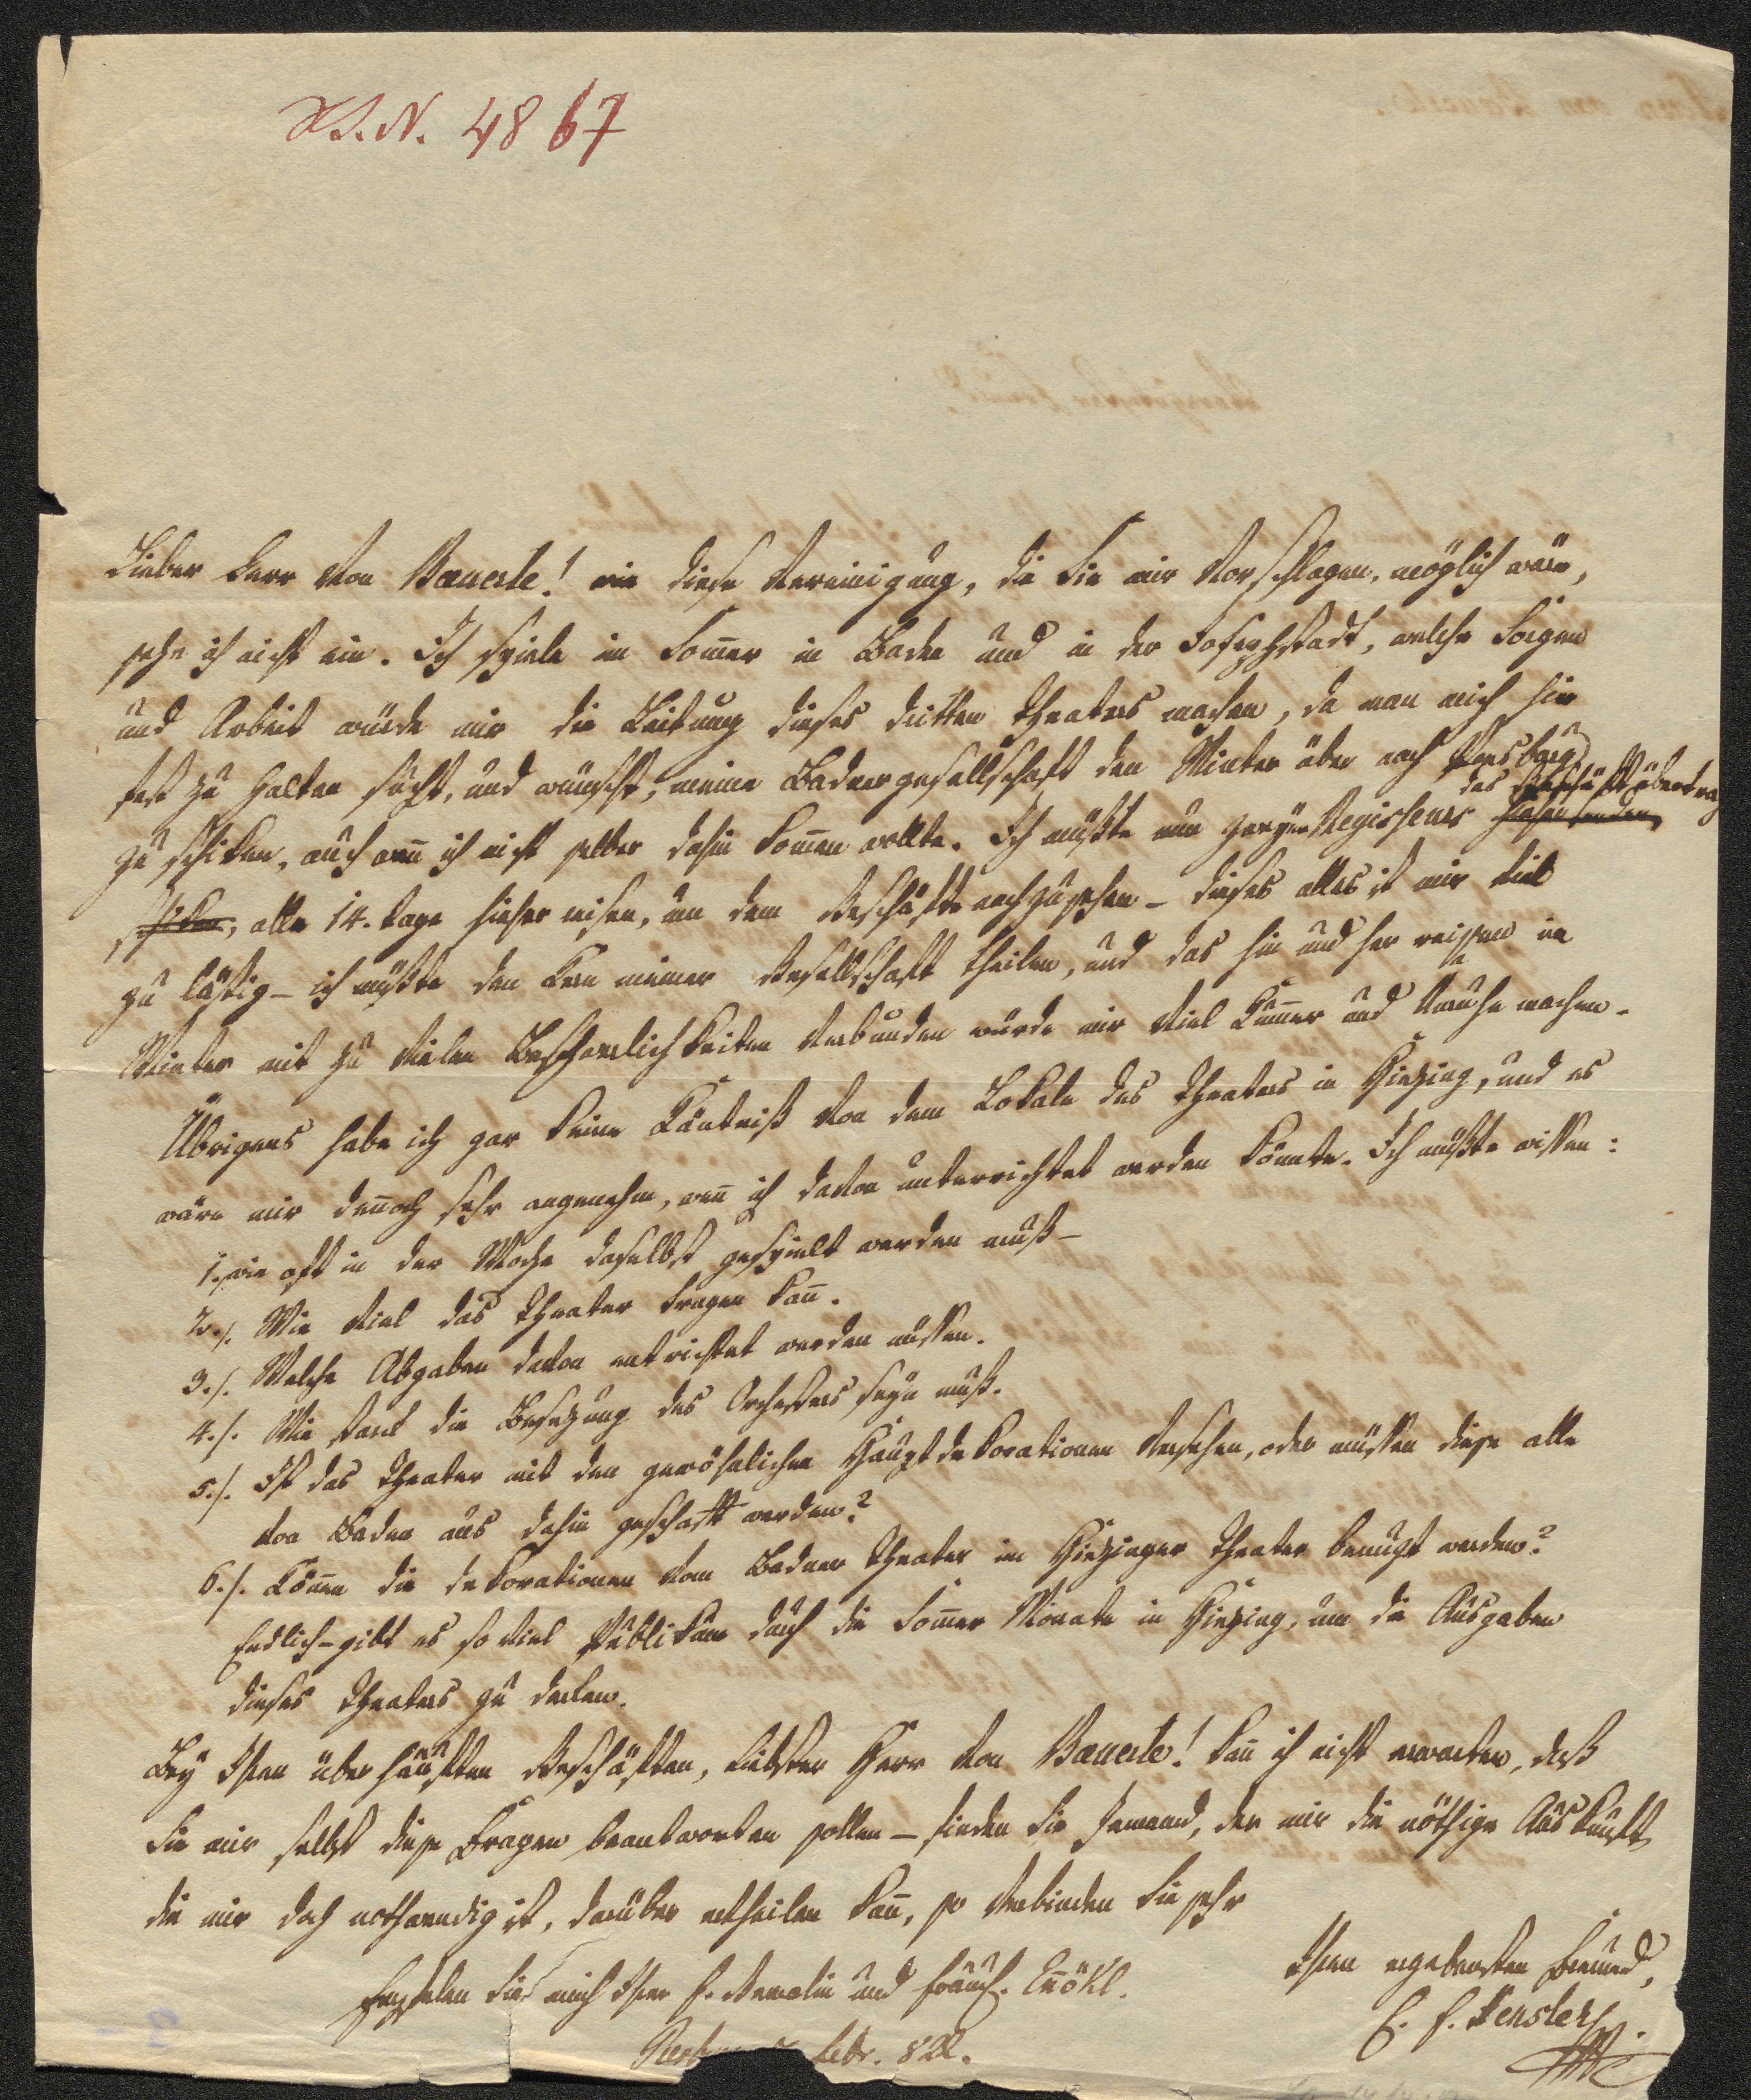 I.N. 4867
Lieber Herr von Baeuerle! wie diese Vereinigung, die Sie mir vorschlagen, möglich wäre,
sehe ich nicht ein. Ich spiele im Som̄er in Baden und in der Josephstadt, welche Sorgen
und Arbeit würde mir die Leitung dieses dritten Theaters machen, da man mich hier
fest zu halten sucht, und wünscht, meine Badnergesellschaft den Winter über nach Presburg
zu schiken, auch wen̄ ich nicht selber dahin kom̄en wollte. Ich müßte nun Regisseurs hieher senden,
das Geschäft übertrag
schiken, alle 14. Tage hieher reisen, um dem Geschäfte nachzusehen – dieses alles ist mir viel
zu lästig – ich müßte den Kern meiner Gesellschaft theilen, und das hin und her reissen im
Winter mit zu vielen Beschwerlichkeiten verbunden würde mir viel Kum̄er und Unruhe machen.
Übrigens habe ich gar keine Kentniß von dem Lokale des Theaters in Hietzing, und es
wäre mir den̄och sehr angenehm, wen̄ ich davon unterrichtet werden könnte. Ich müßte wissen:
1. wie oft in der Woche daselbst gespielt werden muß –
2./. Wie viel das Theater tragen kan̄.
3./. Welche Abgaben davon entrichtet werden müssen.
4./. Wie stark die Besetzung des Orchesters seyn muß.
5./. Ist das Theater mit den gewöhnlichen Hauptdekorationen versehen, oder müssen diese alle
von Baden aus dahin geschafft werden?
6./. Kön̄en die Dekorationen vom Badner Theater im Hietzinger Theater benutzt werden?
Endlich – gibt es so viel Publikum durch die Som̄er Monate in Hietzing, um die Ausgaben
dieses Theaters zu decken.
Bey Ihren überhäuften Geschäften, liebster Herr von Baeuerle! kan̄ ich nicht erwarten, daß
Sie mir selbst diese Fragen beantworten sollen – finden Sie Jemand, der mir die nöthige Auskunft,
die mir doch nothwendig ist, darüber ertheilen kan̄, so verbinden Sie sehr
Ihren ergebensten Freund,
C. F. Hensler
Empfelen Sie mich Ihrer F. Gemalin und Enökl.
Febr. 822.